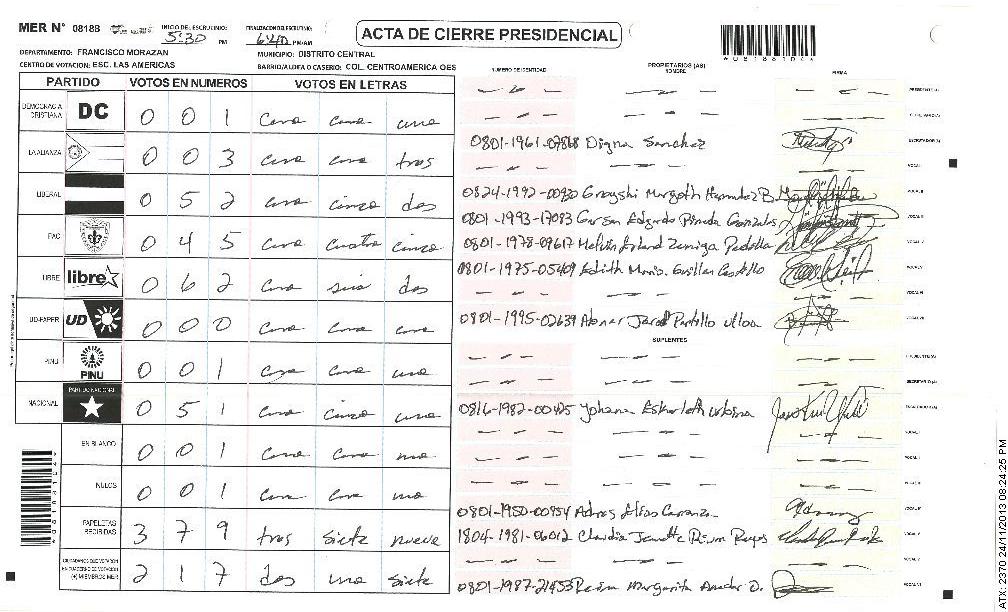 MER N° 08188
INICIO DEL ESCRUCINIO: 5:30 PM
FINALIZACION DEL ESCRUTINIO: 6:40 PM/AM
ACTA DE CIERRE PRESIDENCIAL
DEPARTAMENTO: FRANCISCO MORAZAN
MUNICIPIO: DISTRITO CENTRAL
CENTRO DE VOTACION: ESC. LAS AMERICAS
BARRIO/ALDEA O CASERIO: COL. CENTROAMERICA OES
NUMERO DE IDENTIDAD PROPIETARIOS (AS) NOMBRE FIRMA
PARTIDO VOTOS EN NUMEROS VOTOS EN LETRAS
DEMOCRACIA CRISTIANA DC 0 0 1 cero cero uno
LA ALIANZA 0 0 3 cero cero tres
LIBERAL 0 5 2 cero cinco dos
PAC 0 4 5 cero cuatro cinco
LIBRE libre 0 6 2 cero seis dos
UD-FAPER UD 0 0 0 cero cero cero
PINU PINU 0 0 1 cero cero uno
NACIONAL PARTIDO NACIONAL 0 5 1 cero cinco uno
EN BLANCO 0 0 1 cero cero uno
NULOS 0 0 1 cero cero uno
PAPELETAS RECIBIDAS 3 7 9 tres siete nueve
CIUDADANOS QUE VOTARON EN CUADERNO DE VOTACION (+) MIEMBROS MER 2 1 7 dos uno siete
0801-1961-07868 Digna Sanchez
0824-1992-00930 Margoth Hernandez B.
0801-1993-17083 Edgardo Pineda Gonzales
0801-1978-09617 Melvin Zuniga Padilla
0801-1975-05409 Edith Maria Castillo
0801-1995-02639 Abner Jared Portillo Ulloa
SUPLENTES
0816-1982-00425 Yohana
0801-1950-00954
1804-1981-06012 Claudia Janette Reyes
0801-1987-21453 Margarita
ATX-2370 24/11/2013 08:24:25 PM